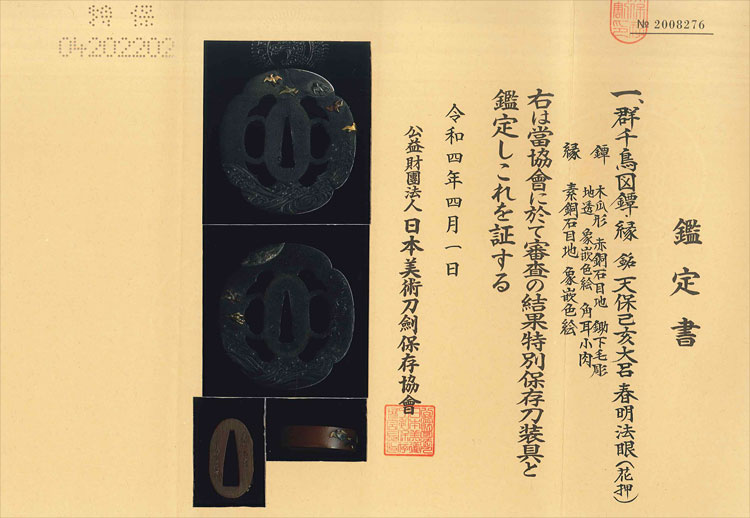 № 2008276
鑑定書
一、群千鳥図鐔・縁 銘 天保己亥大呂 春明法眼(花押)
鐔 木瓜形 赤銅石目地 鋤下毛彫
地透 象嵌色絵 角耳小肉
縁 素銅石目地 象嵌色絵
右は當協會に於て審査の結果特別保存刀装具と
鑑定しこれを証する
令和四年四月一日
公益財團法人 日本美術刀劍保存協會
04202202